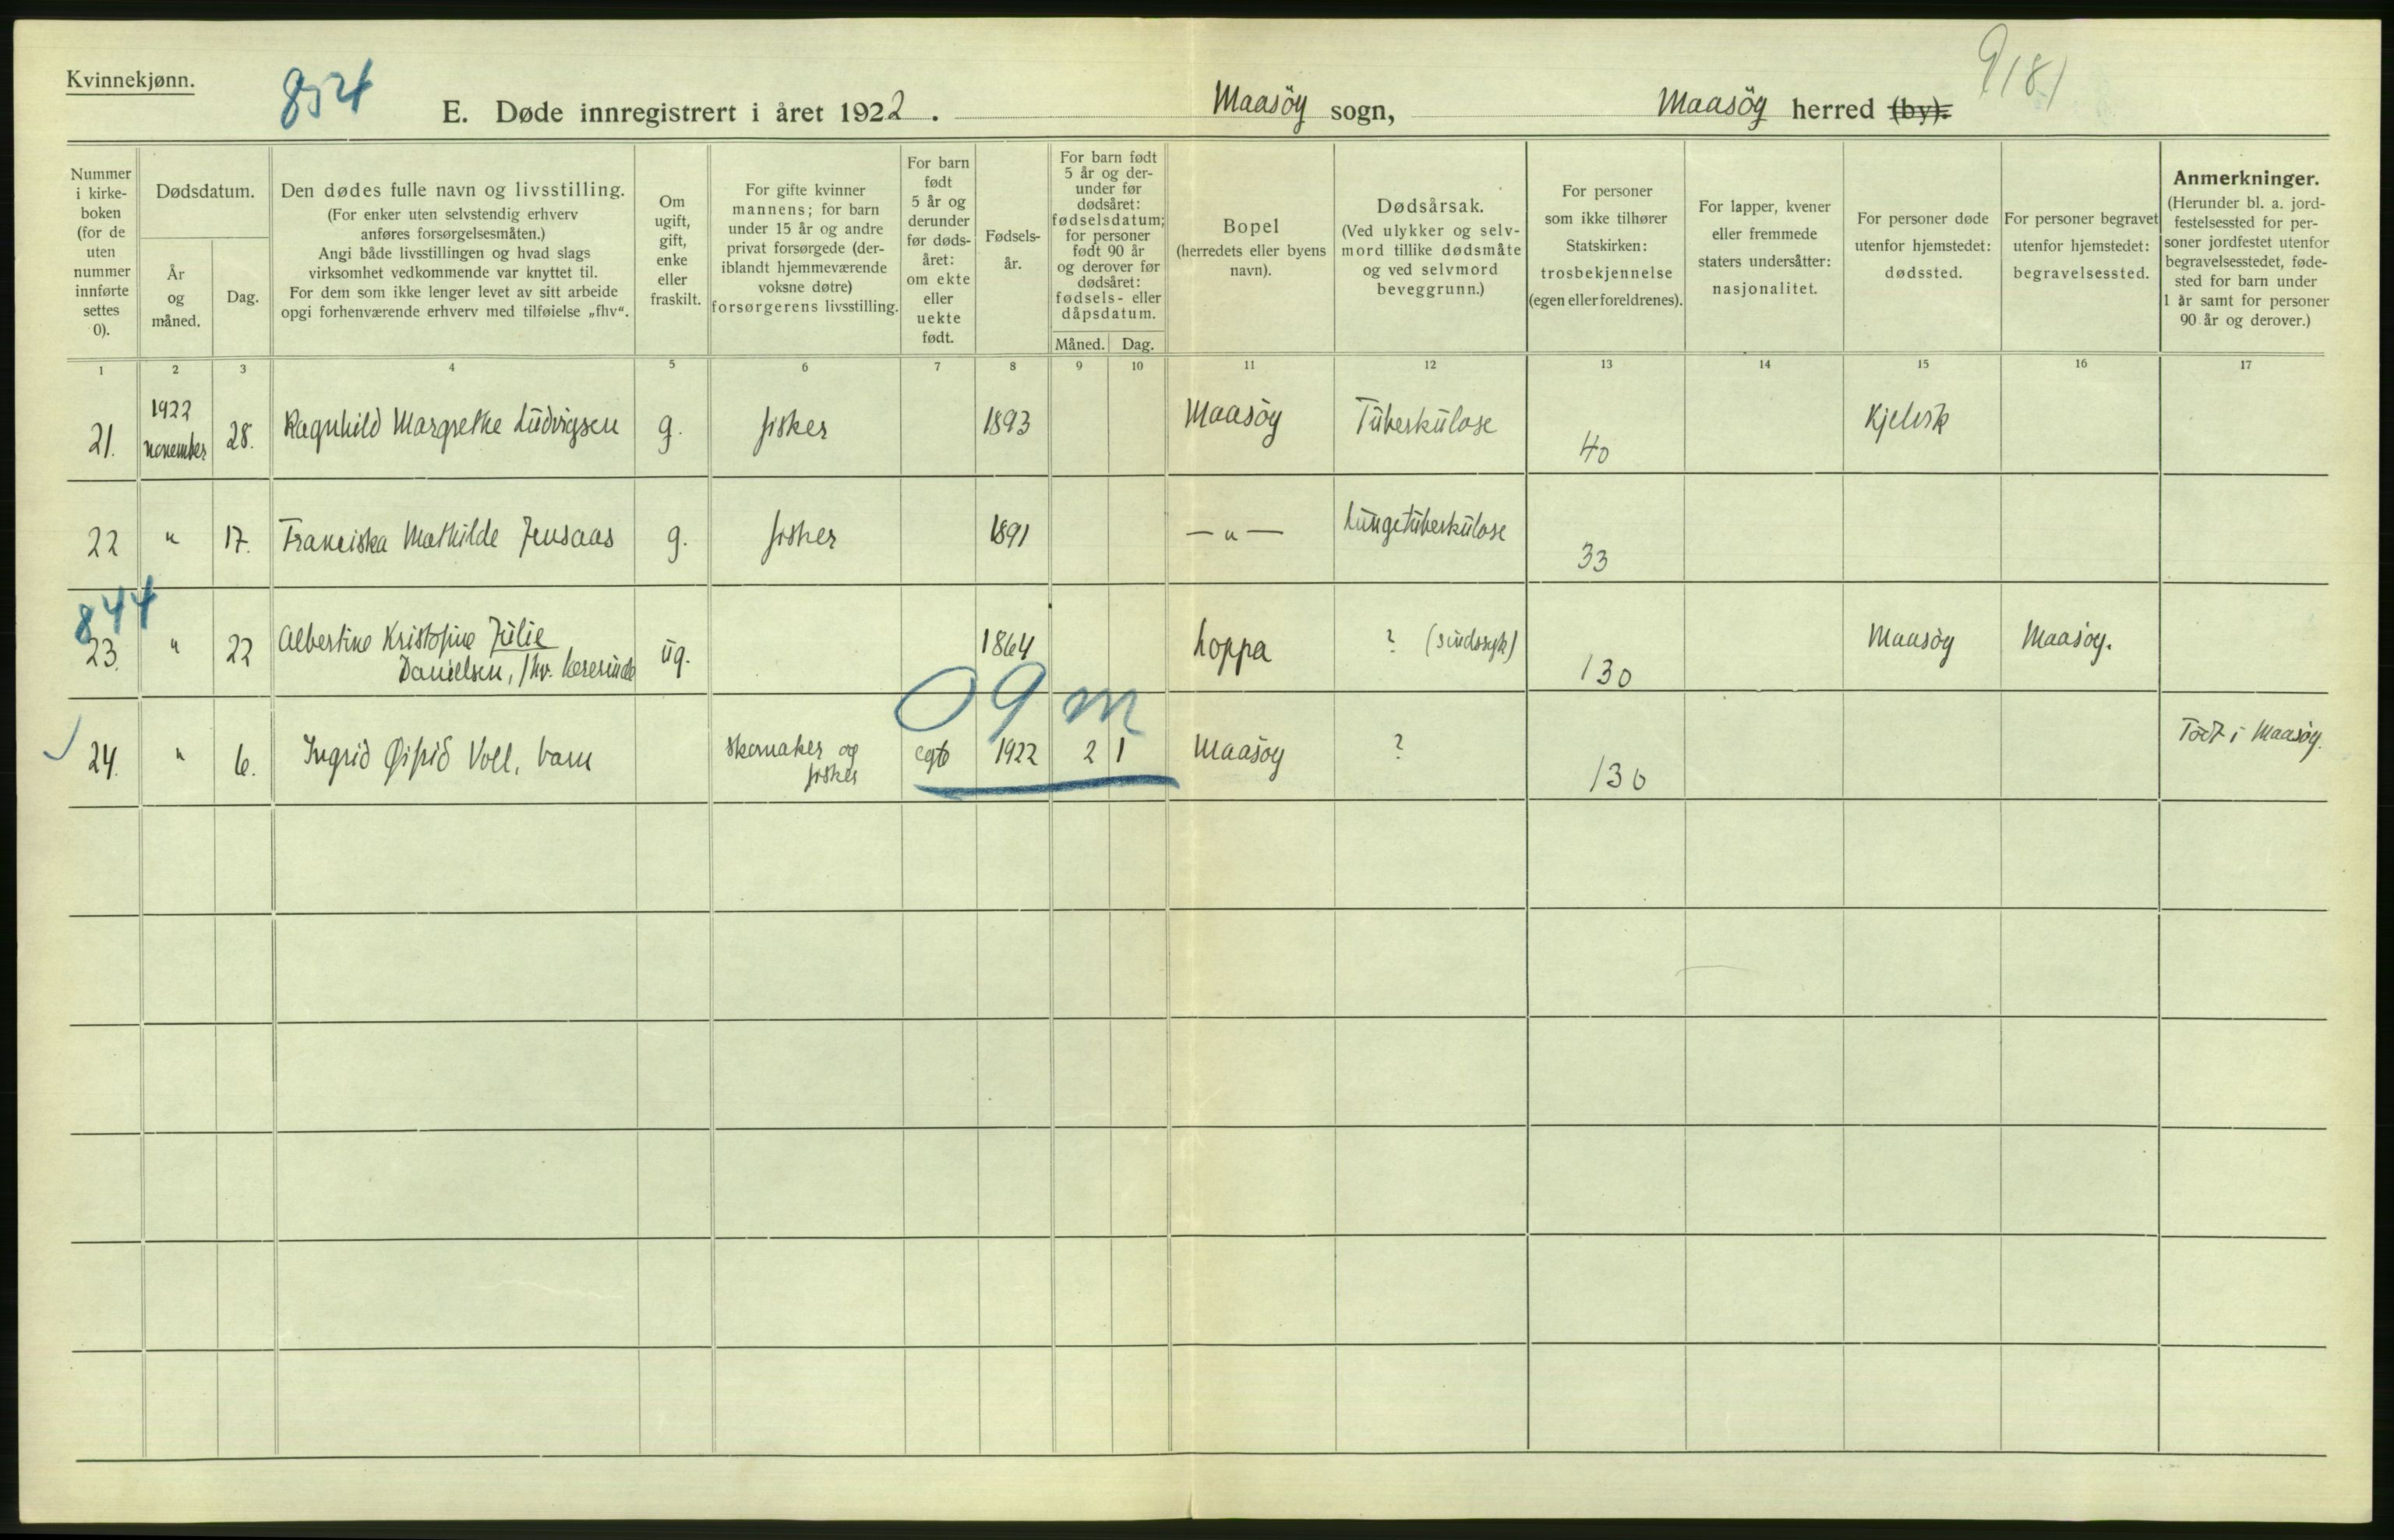 Kvinnekjønn.
8524
9181
E. Døde innregistrert i året 1922. Maasöy sogn, Maasöy herred (by).
Nummer
i kirke-
boken
(for de
uten
nummer
innførte
settes
0).
Dødsdatum.
År
og
måned.
Dag.
Den dødes fulle navn og livsstilling.
(For enker uten selvstendig erhverv
anføres forsørgelsesmåten.)
Angi både livsstillingen og hvad slags
virksomhet vedkommende var knyttet til.
For dem som ikke lenger levet av sitt arbeide
opgi forhenværende erhverv med tilføielse „fhv“.
Om
ugift,
gift,
enke
eller
fraskilt.
For gifte kvinner
mannens; for barn
under 15 år og andre
privat forsørgede (der-
iblandt hjemmeværende
voksne døtre)
forsørgerens livsstilling.
For barn
født
5 år og
derunder
før døds-
året:
om ekte
eller
uekte
født.
Fødsels-
år.
For barn født
5 år og der-
under før
dødsåret:
fødselsdatum;
for personer
født 90 år
og derover før
dødsåret:
fødsels- eller
dåpsdatum.
Måned. Dag.
Bopel
(herredets eller byens
navn).
Dødsårsak.
(Ved ulykker og selv-
mord tillike dødsmåte
og ved selvmord
beveggrunn.)
For personer
som ikke tilhører
Statskirken:
trosbekjennelse
(egen eller foreldrenes).
For lapper, kvener
eller fremmede
staters undersåtter:
nasjonalitet.
For personer døde
utenfor hjemstedet:
dødssted.
For personer begravet
utenfor hjemstedet:
begravelsessted.
Anmerkninger.
(Herunder bl. a. jord-
festelsessted for per-
soner jordfestet utenfor
begravelsesstedet, føde-
sted for barn under
1 år samt for personer
90 år og derover.)
1 2 3 4 5 6 7 8 9 10 11 12 13 14 15 16 17
1922
21. november 28. Ragnhild Margrethe Ludvigsen g. fisker 1893 Maasöy Tuberkulose 40 Kjelvik
22 " 17. Franciska Mathilde Jensaas g. fisker 1891 — " — Lungetuberkulose 33
844
23. " 22 Albertine Kristofine Julie ug. 1864 Loppa ? (sindssyk) 130 Maasöy Maasöy.
Danielsen, fhv. lærerinde
09 m
24. " 6. Ingrid Voll, barn skomaker og egte 1922 2 1 Maasöy ? 130 Födt i Maasöy.
fisker